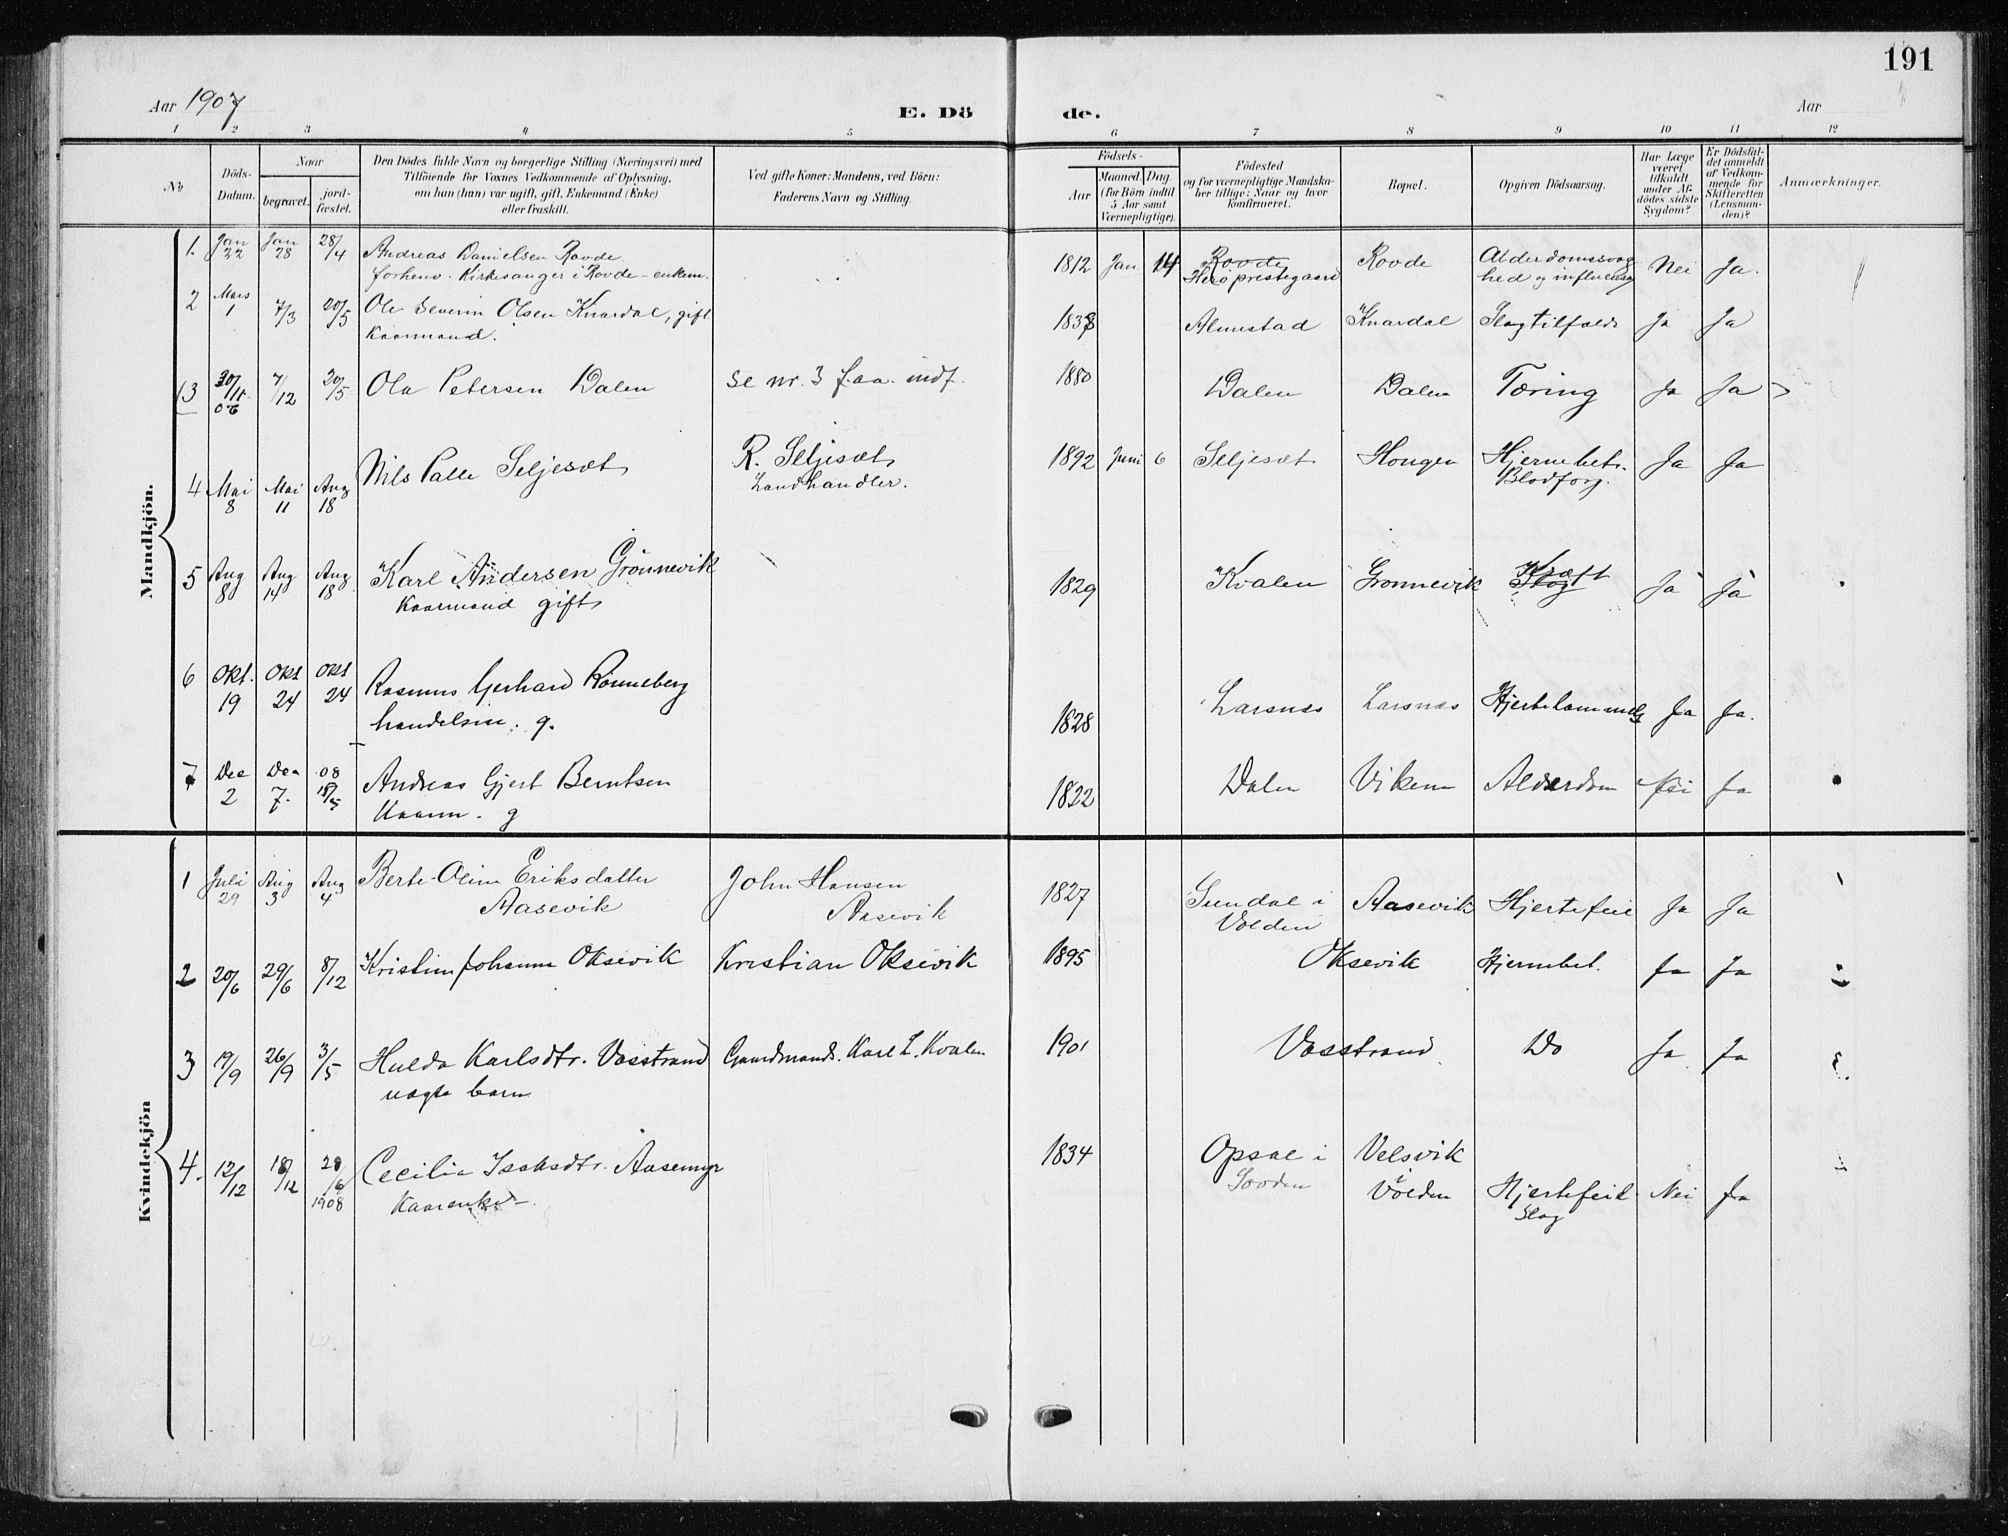 191
Aar 1907
E. Dö
de.
Aar
1 2 3 4 5 6 7 8 9 10 11 12
No
Döds-Datum.
Naar
begravet.
jord-fæstet.
Den Dödes fulde Navn og borgerlige Stilling (Næringsvei) med
Tilföiende for Voxnes Vedkommende af Oplysning,
om han (hun) var ugift, gift, Enkemand (Enke)
eller fraskilt.
Ved gifte Koner: Mandens, ved Börn:
Faderens Navn og Stilling.
Födsels-
Aar
Maaned. Dag.
(for Börn indtil
5 Aar samt
Værnepligtige).
Födested
og for værnepligtige Mandska-
ber tillige: Naar og hvor
konfirmeret.
Bopæl.
Opgiven Dödsaarsag.
Har Læge
været
tilkaldt
under Af-
dödes sidste
Sygdom?
Er Dödsfal-
det anmeldt
af Vedkom-
mende for
Skifteretten
(Lensman-
den)?
Anmærkninger.
Mandkjön.
1. Jan 22 Jan 28 28/4 Andreas Danielsen Rovde 1812 Jan 14 Rovde Rovde Alderdomssvag Nei Ja.
forhenv. Kirkesanger i Rovde - enkem. Herö prestegaard hed og influensa
2 Mars 1 7/3 20/5 Ole Severin Olsen Knardal, gift 1838 Almestad Knardal Slagtilfælde Ja Ja
Kaarmand.
13 30/11 06 7/12 20/5 Ola Petersen Dalen se nr. 3 f.aa. indf. 1880 Dalen Dalen Tæring Ja Ja
4 Mai 8 Mai 11 Aug 18 Nils Palle Seljesæt R. Seljesæt 1892 Juni 6 Seljesæt Hougen Hjernebet. Ja Ja
Landhandler. Blodforg.
5 Aug 8 Aug 14 Aug 18 Karl Andersen Grönnevik 1829 Kvalen Grønnevik Kræft Ja Ja
Kaarmand gift Slag
6 Okt. 19 Okt 24 Okt 24 Rasmus Gerhard Rönneberg 1828 Larsnæs Larsnæs Hjertelammelse Ja Ja.
handelsm. g.
7 Dec 2 Dec 7. 08 18/5 Andreas Gjert Berntsen 1822 Dalen Viken Alderdom Nei Ja
Kaarm. g
Kvindekjön
1 Juli 29 Aug 3 Aug 4 Berte Oline Eriksdatter John Hansen 1827 Sundal i Aasevik Hjertefeil Ja Ja
Aasevik Aasevik Volden
2 20/6 29/6 8/12 Kristine Johanne Oksevik Kristian Oksevik 1895 Oksevik Hjernebet. Ja Ja
3 19/9 26/9 3/5 Hulda Karlsdtr. Vasstrand Gaardmands. Karl L. Kvalen 1901 Vasstrand Do Ja Ja
uægte barn
4. 12/12 18/12 28/6 1908 Cecilia Isaksdtr. Aasemyr 1834 Opsal i Velsvik
Kaarenke Sovden i Volden Hjertefeil Nei Ja
Slag